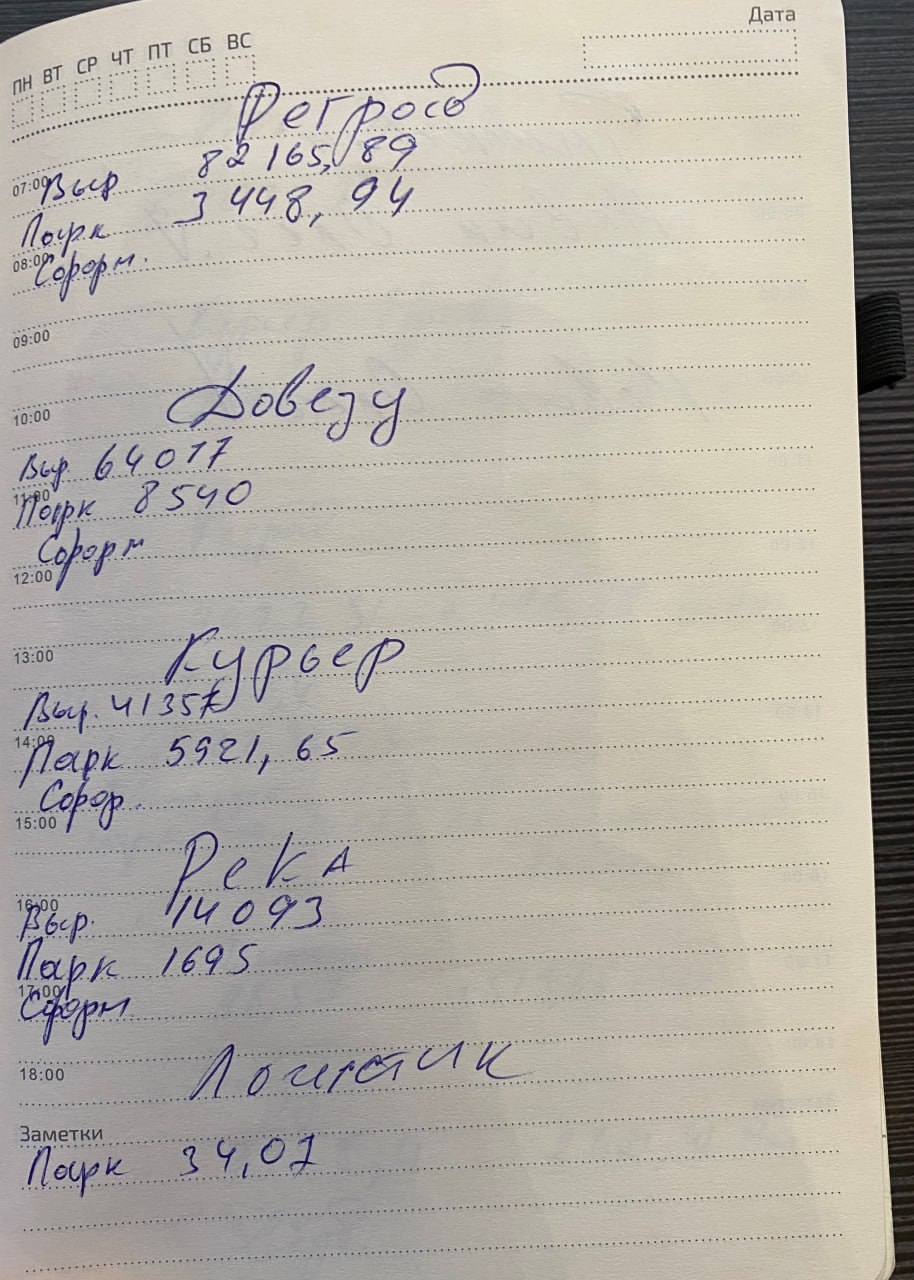 Дата
ПН ВТ СР ЧТ ПТ СБ ВС
Регрось
07:00 Выр 82 165,89
Парк 3 448,94
08:00 Сформ.
09:00
10:00 Довезу
Выр. 64 077
11:00 Парк 8 540
Сформ
12:00
13:00 Курьер
Выр. 41357
14:00 Парк 5921,65
Сфор.
15:00
Река
16:00 Выр. 14 093
Парк 1695
17:00 Сформ
18:00 Логистик
Заметки
Парк 34,07